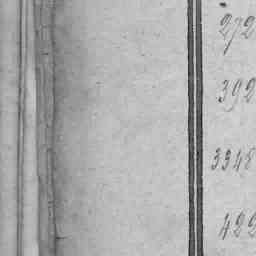 272
392
3348
422